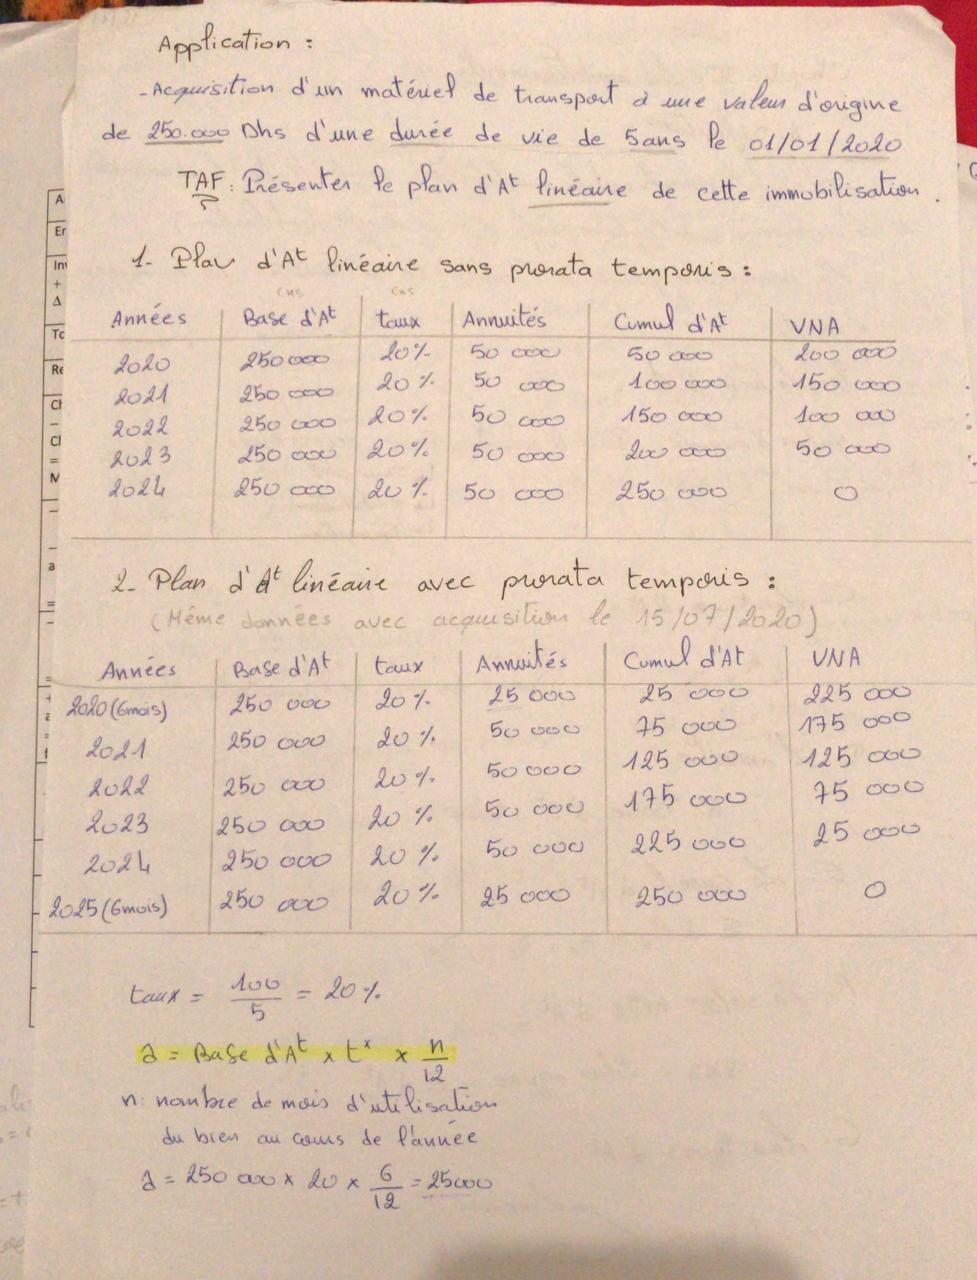 Application :
- Acquisition d'un matériel de transport à une valeur d'origine
de 250.000 Dhs d'une durée de vie de 5ans le 01/01/2020
TAF : Présenter le plan d'At linéaire de cette immobilisation.
1- Plan d'At linéaire sans prorata temporis :
cns cns
Années Base d'At taux Annuités Cumul d'At VNA
2020 250 000 20% 50 000 50 000 200 000
2021 250 000 20% 50 000 100 000 150 000
2022 250 000 20% 50 000 150 000 100 000
2023 250 000 20% 50 000 200 000 50 000
2024 250 000 20% 50 000 250 000 0
2- Plan d'At linéaire avec prorata temporis :
(Même données avec acquisition le 15/07/2020)
Années Base d'At taux Annuités Cumul d'At VNA
2020 (6mois) 250 000 20% 25 000 25 000 225 000
2021 250 000 20% 50 000 75 000 175 000
2022 250 000 20% 50 000 125 000 125 000
2023 250 000 20% 50 000 175 000 75 000
2024 250 000 20% 50 000 225 000 25 000
2025 (6mois) 250 000 20% 25 000 250 000 0
taux = 100/5 = 20%
a = Base d'At x tx x n/12
n : nombre de mois d'utilisation
du bien au cours de l'année
a = 250 000 x 20 x 6/12 = 25000